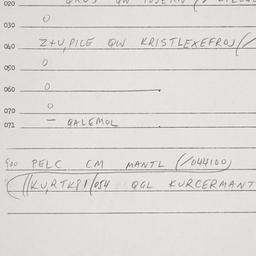 020
030 0
040 Z+U,PICE QW KRISTLEXEFROJ(/
050 0
060 0
070 0
071 — QALEMOL
900 PELC CM MANTL (/044100)
QGL KURCERMANT